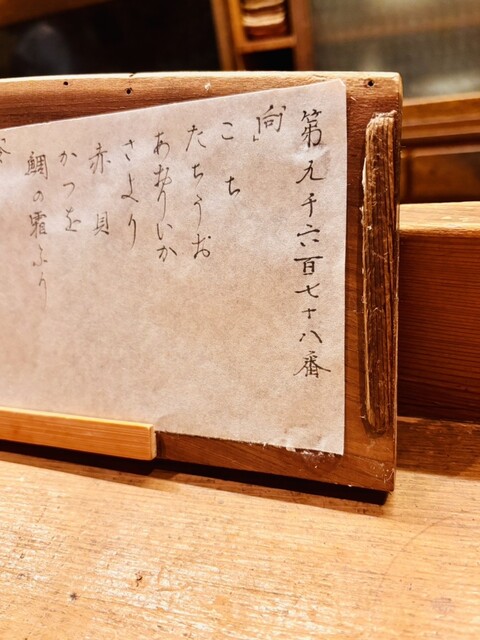 第九千六百七十八番
向」
こち
たちうお
あおりいか
さより
赤貝
かつを
鯛の霜ふり